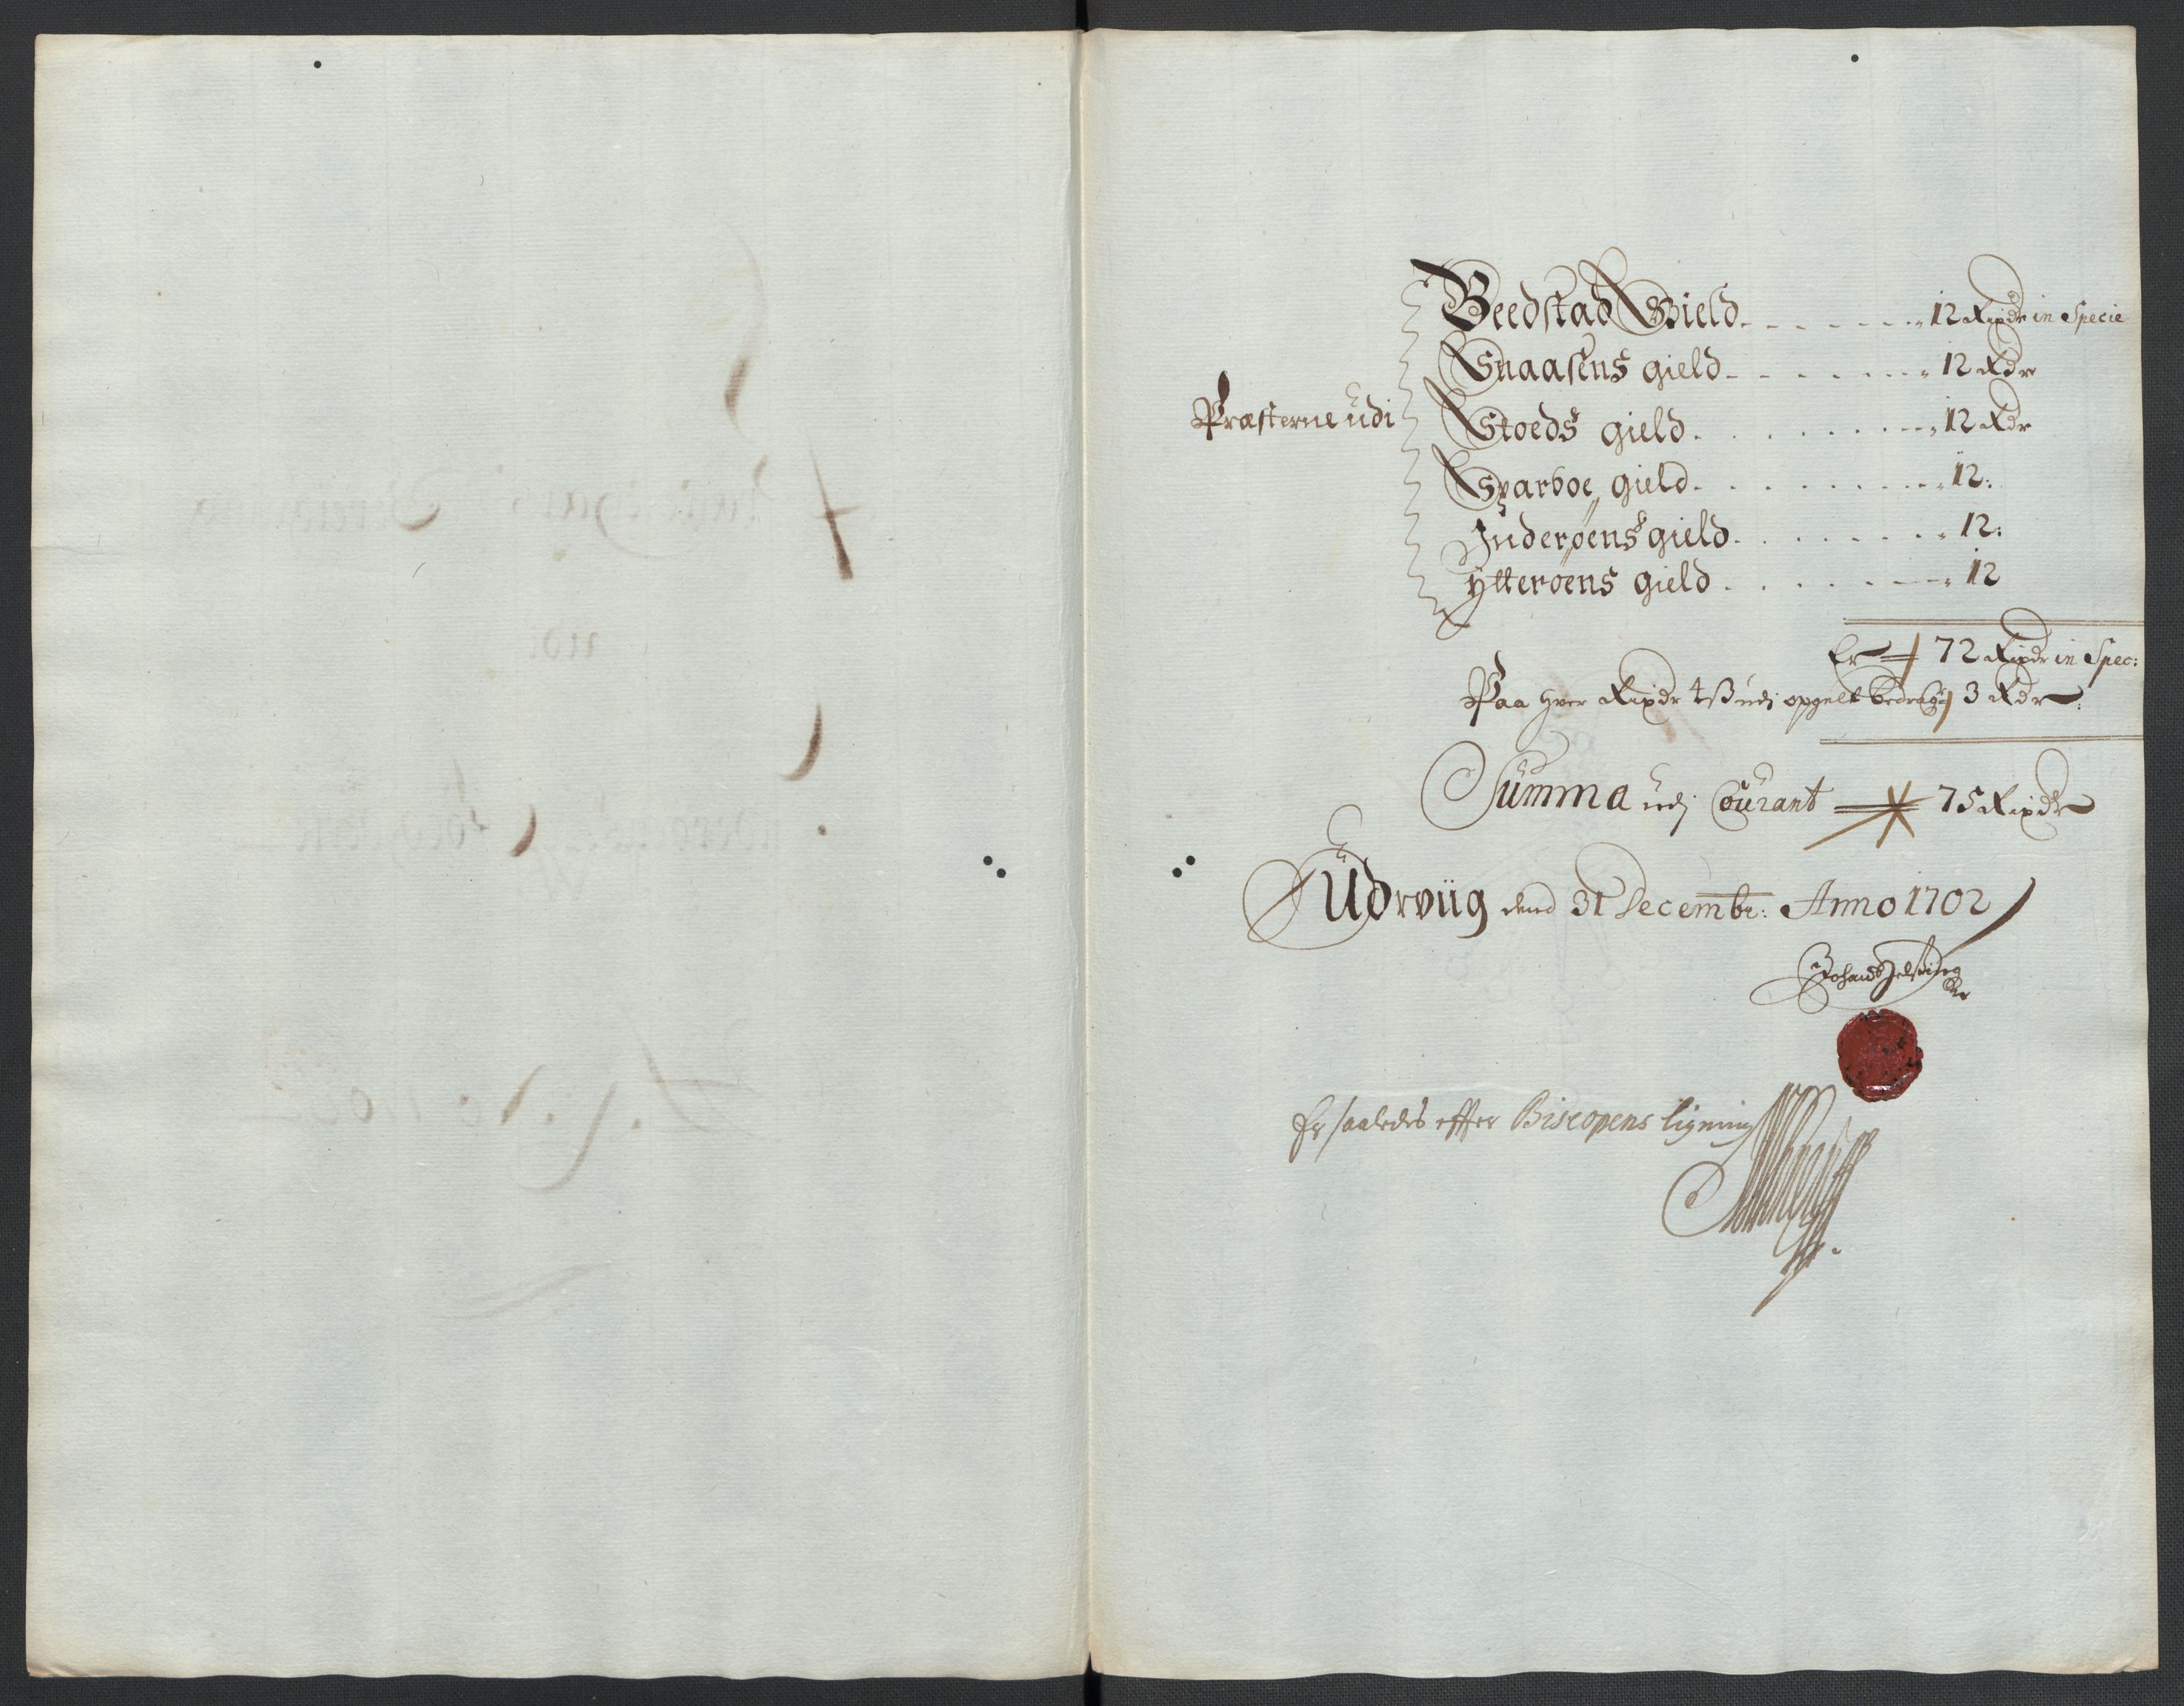 Beedstad Gield 12 Rixdr in Specie
Snaasens gield 12 Rdr
Præsterne udi
Stoeds gield 12 Rdr
Sparboe gield 12:
Inderøens gield 12:
Ytterøens gield 12
Er 72 Rixdr in Spec:
Paa hver Rixdr 4 ß udj opgelt bedrager 3 Rdr
Summa udj Courant 75 Rixdr
Udrviig dend 31 Decembr: Anno 1702
Er saaledes effter Biscopens ligning